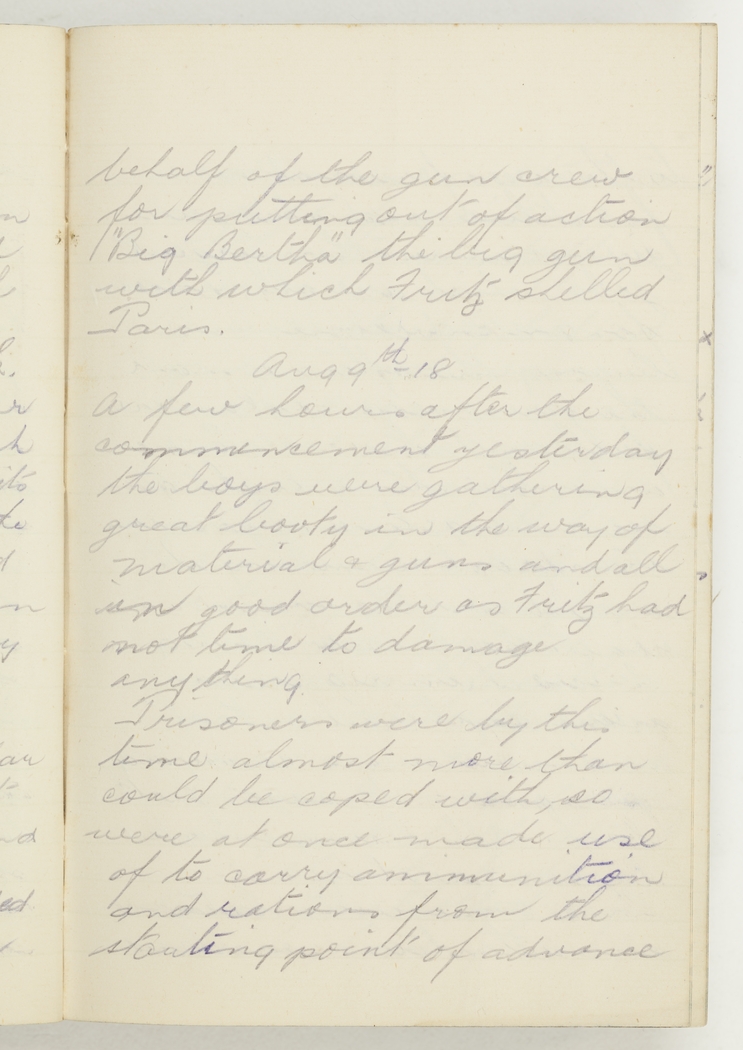 behalf of the gun crew
for putting out of action
"Big Bertha" the big gun
with which Fritz shelled
Paris.
Aug 9th 18
A few hours after the
commencement yesterday
the boys were gathering
great booty in the way of
material & guns and all
in good order as Fritz had
not time to damage
anything.
Prisoners were by this
time almost more than
could be coped with, so
were at once made use
of to carry ammunition
and rations from the
starting point of advance